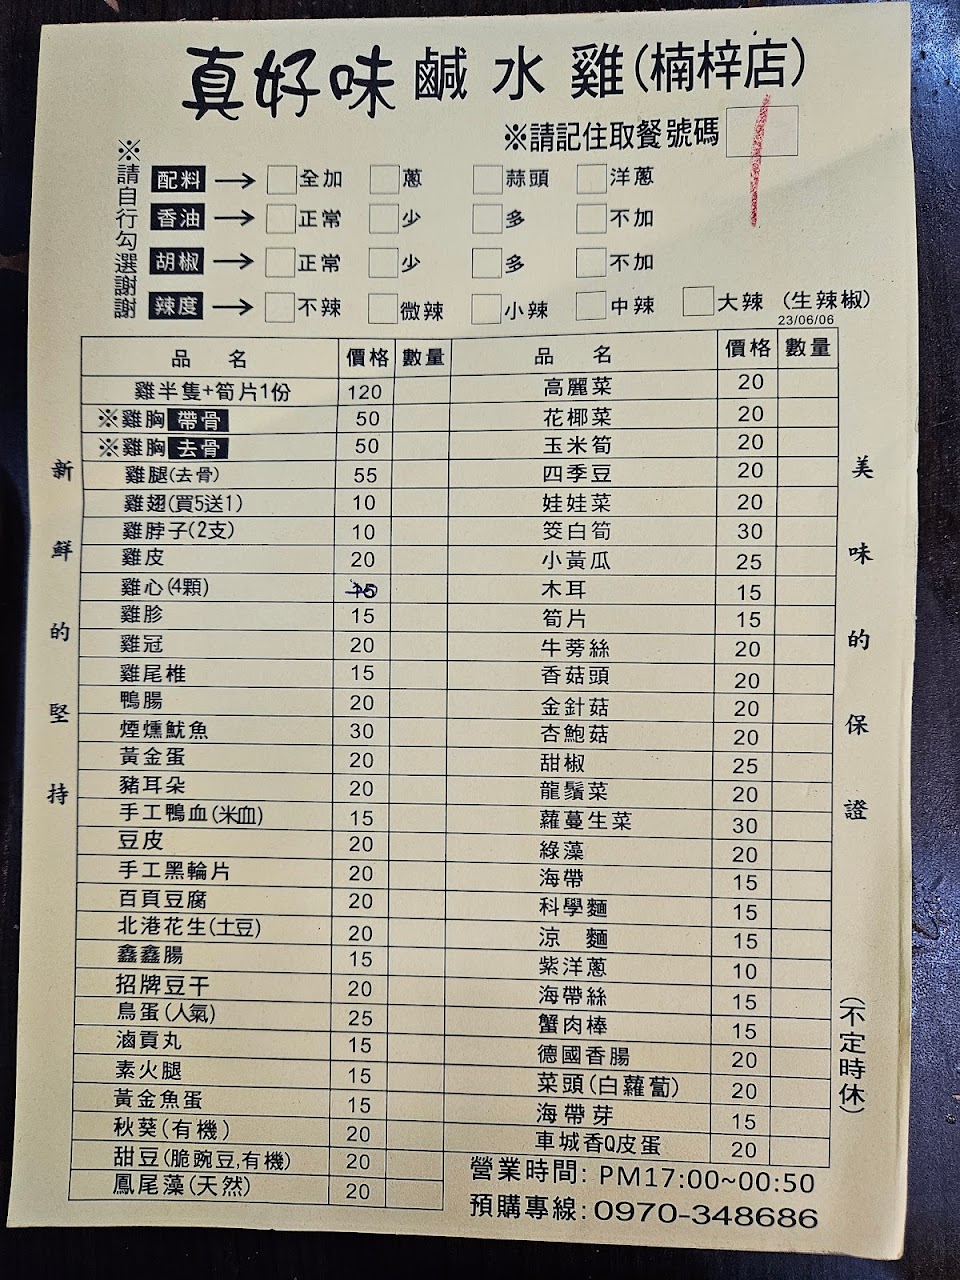 真好味 鹹水雞(楠梓店)
※請記住取餐號碼
※請自行勾選謝謝
配料 → 全加 蔥 蒜頭 洋蔥
香油 → 正常 少 多 不加
胡椒 → 正常 少 多 不加
辣度 → 不辣 微辣 小辣 中辣 大辣 (生辣椒)
23/06/06
新鮮的堅持
品名 價格 數量
雞半隻+筍片1份 120
※雞胸 帶骨 50
※雞胸 去骨 50
雞腿(去骨) 55
雞翅(買5送1) 10
雞脖子(2支) 10
雞皮 20
雞心(4顆)
雞胗 15
雞冠 20
雞尾椎 15
鴨腸 20
煙燻魷魚 30
黃金蛋 20
豬耳朵 20
手工鴨血(米血) 15
豆皮 20
手工黑輪片 20
百頁豆腐 20
北港花生(土豆) 20
鑫鑫腸 15
招牌豆干 20
鳥蛋(人氣) 25
滷貢丸 15
素火腿 15
黃金魚蛋 15
秋葵(有機) 20
甜豆(脆豌豆,有機) 20
鳳尾藻(天然) 20
品名 價格 數量
高麗菜 20
花椰菜 20
玉米筍 20
四季豆 20
娃娃菜 20
筊白筍 30
小黃瓜 25
木耳 15
筍片 15
牛蒡絲 20
香菇頭 20
金針菇 20
杏鮑菇 20
甜椒 25
龍鬚菜 20
蘿蔓生菜 30
綠藻 20
海帶 15
科學麵 15
涼麵 15
紫洋蔥 10
海帶絲 15
蟹肉棒 15
德國香腸 20
菜頭(白蘿蔔) 20
海帶芽 15
車城香Q皮蛋 20
美味的保證
(不定時休)
營業時間: PM17:00~00:50
預購專線:0970-348686